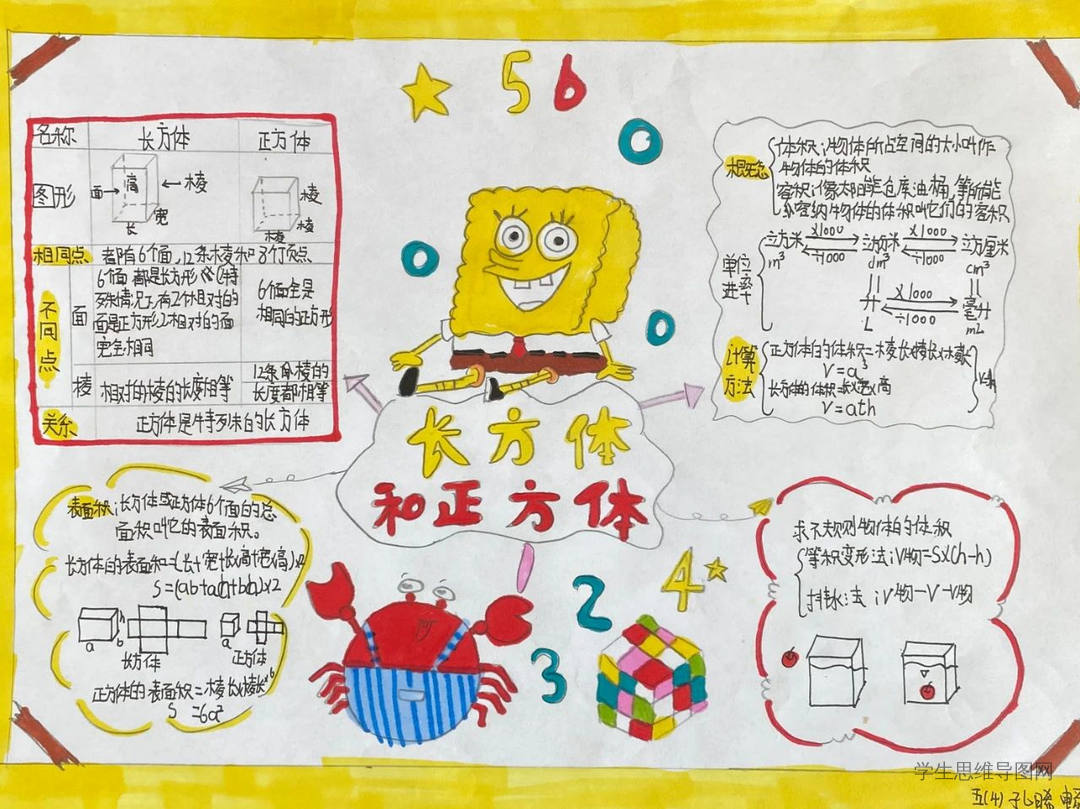 5 6
名称 长方体 正方体
图形 面 高 棱 长 宽 棱 棱 棱
相同点 都有6个面，12条棱和8个顶点
不同点
面
6个面都是长方形《(特
殊情况下,有2个相对的
面是正方形2相对的面
完全相同
6个面全是
相同的正方形
棱
相对的棱的长度相等
12条的棱的
长度都相等
关系 正方体是特殊的长方体
概念
体积：物体所占空间的大小叫作
物体的体积
容积：像 仓库油桶,等所能
容纳物体的体积叫它们的容积
单位
进率
立方米 ×1000 ÷1000 立方分米 ×1000 ÷1000 立方厘米
m³ dm³ cm³
升 ×1000 ÷1000 毫升
L mL
计算
方法
正方体的体积=棱长×棱长×棱长
V=a³
长方体的体积=长×宽×高
V=
长方体
和正方体
表面积：长方体或正方体6个面的总
面积叫它的表面积。
长方体的表面积=(长×宽+长×高+宽×高)×2
S=(ab+ah+bh)×2
a b h a
长方体 正方体
正方体的表面积=棱长×棱长×6
S =6a²
求不规则物体的体积
等积变形法:V物=S×(h-h)
排水法:V物=V-V物
4
2
3
学生思维导图网
五(4)